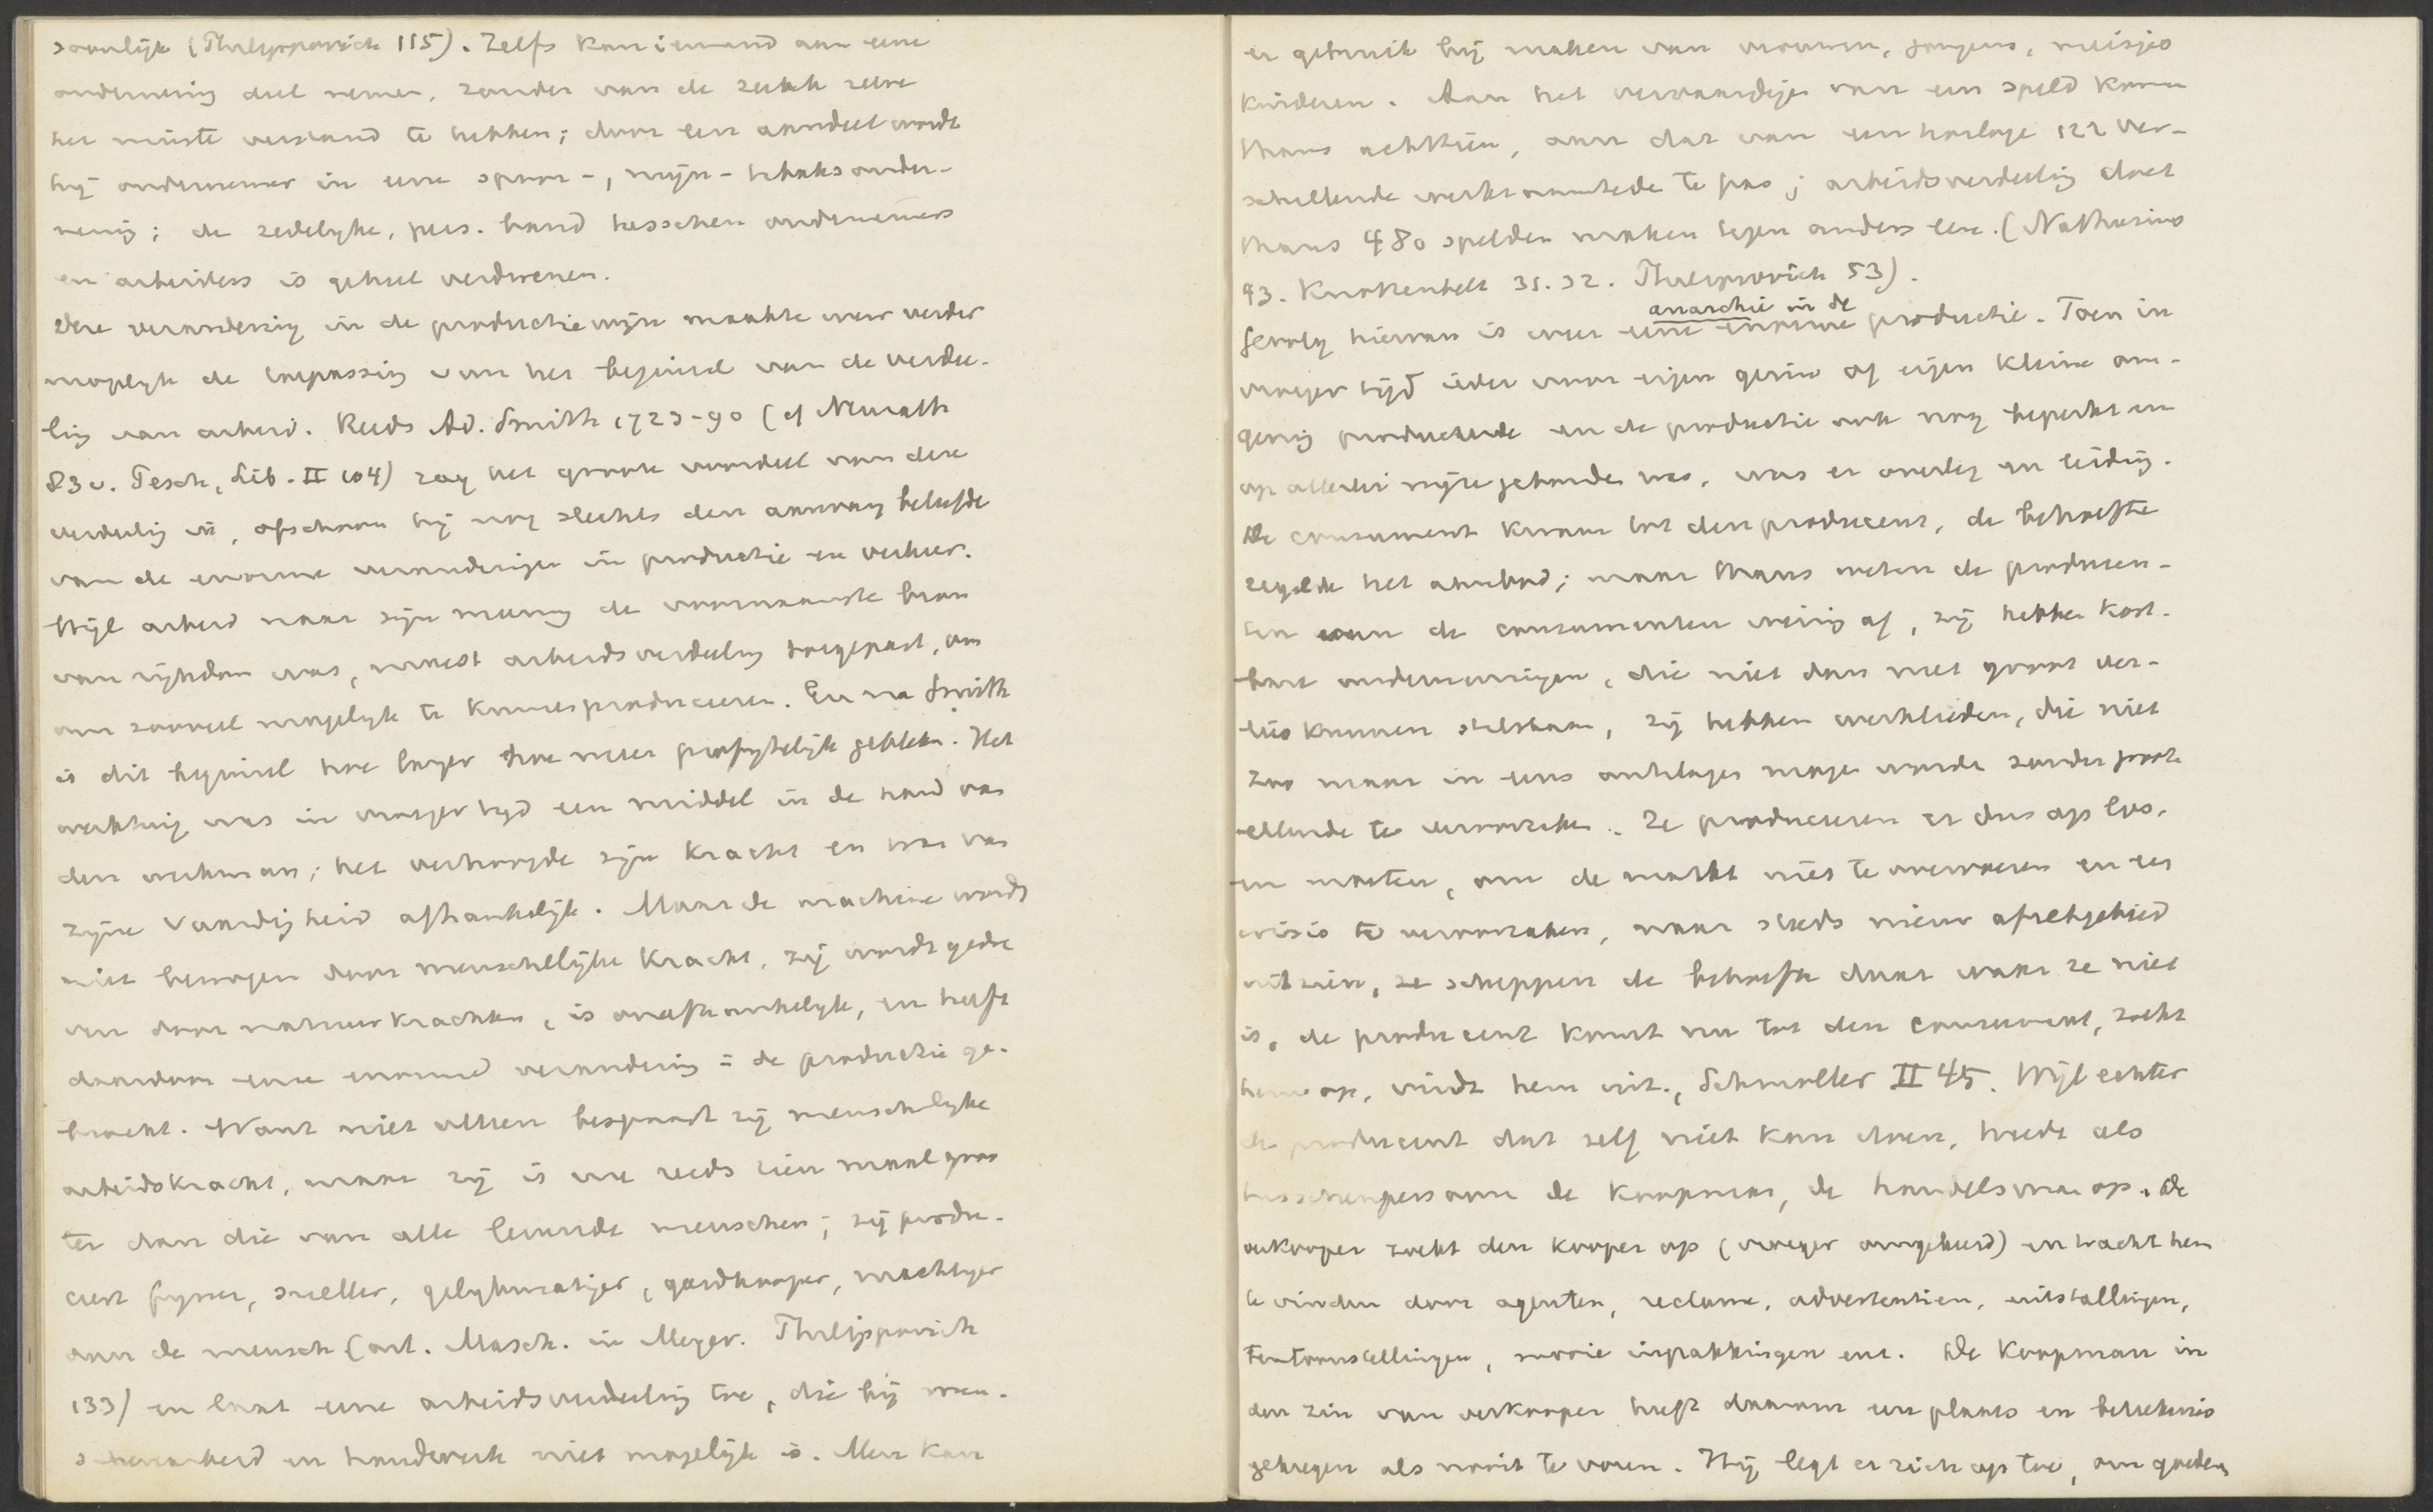 soonlijk (Philippovich 115). Zelfs kan iemand aan eene
onderneming deel nemen, zonder van de zaak zelve
het minste verstand te hebben; door een aandeel wordt
hij ondernemer in eene spoor-, mijn- tabaksonder-
neming; de zedelyke, pers. band tusschen ondernemers
en arbeiders is geheel verdwenen.
Deze verandering in de productiewijze maakte weer verder
mogelyk de toepassing van het beginsel van de verdee-
ling van arbeid. Reeds Ad. Smith 1723-90 (cf Neurath
83 v. Pesch, Lib. II 104) zag het groote voordeel van deze
verdeeling in, ofschoon hij nog slechts den aanvang beleefde
van de enorme veranderingen in productie en verkeer.
Wijl arbeid naar zijn meening de voornaamste bron
van rijkdom was, moest arbeidsverdeeling toegepast, om
om zooveel mogelyk te kunnen produceeren. En na Smith
is dit beginsel hoe langer hoe meer profytelijk gebleken. Het
werktuig was in vroeger tyd een middel in de hand van
den werkman; het verhoogde zijn kracht en was van
zijne vaardigheid afhankelijk. Maar de machine wordt
niet bewogen door menschelijke kracht, zij wordt gedre
ven door natuurkrachten, is onafhankelyk, en heeft
daardoor eene enorme verandering in de productie ge-
bracht. Want niet alleen bespaart zij menschelyke
arbeidskracht, maar zij is nu reeds tien maal groo
ter dan die van alle levende menschen; zij produ-
ceert fyner, sneller, gelykmatiger, goedkooper, machtiger
dan de mensch (art. Masch. in Meyer. Philippovich
133) en laat eene arbeidsverdeeling toe, die bij men-
schenarbeid en handwerk niet mogelijk is. Men kan
er gebruik bij maken van vrouwen, jongens, meisjes
kinderen. Aan het vervaardigen van een speld komen
thans achttien, aan dat van een horloge 122 ver-
schillende werkzaamheden te pas; arbeidsverdeeling doet
thans 480 spelden maken tegen anders eene. (Nathusius
93. Knottenbelt 31.32. Philippovich 53).
anarchie in de
Gevolg hiervan is weer eene enorme productie. Toen in
vroeger tijd ieder voor eigen gezin of eigen kleine om-
geving produceerde en de productie ook nog beperkt en
op allerlei wijze gebonden was, was er overleg en leiding.
De consument kwam tot den producent, de behoefte
regelde het aanbod; maar thans weten de producen-
ten van de consumenten weinig af, zij hebben kost-
bare ondernemingen, die niet dan met groot ver-
lies kunnen stilstaan, zij hebben werklieden, die niet
zoo maar in eens ontslagen mogen worden zonder groote
ellende te veroorzaken. Ze produceeren er dus op los,
en moeten, om de markt niet te overvoeren en een
crisis te veroorzaken, naar steeds nieuw afzetgebied
uitzien, ze scheppen de behoefte daar waar ze niet
is, de producent komt nu tot den consument, zoekt
hem op, vindt hem uit, Schmoller II 45. Wijl echter
de producent dat zelf niet kan doen, treedt als
tusschenpersoon de koopman, de handelsman op. De
verkooper zoekt den kooper op (vroeger omgekeerd) en tracht hem
te vinden door agenten, reclame, advertentien, uitstallingen,
tentoonstellingen, mooie inpakkingen enz. De koopman in
den zin van verkooper heeft daarom een plaats en beteekenis
gekregen als nooit te voren. Hij legt er zich op toe, om goederen